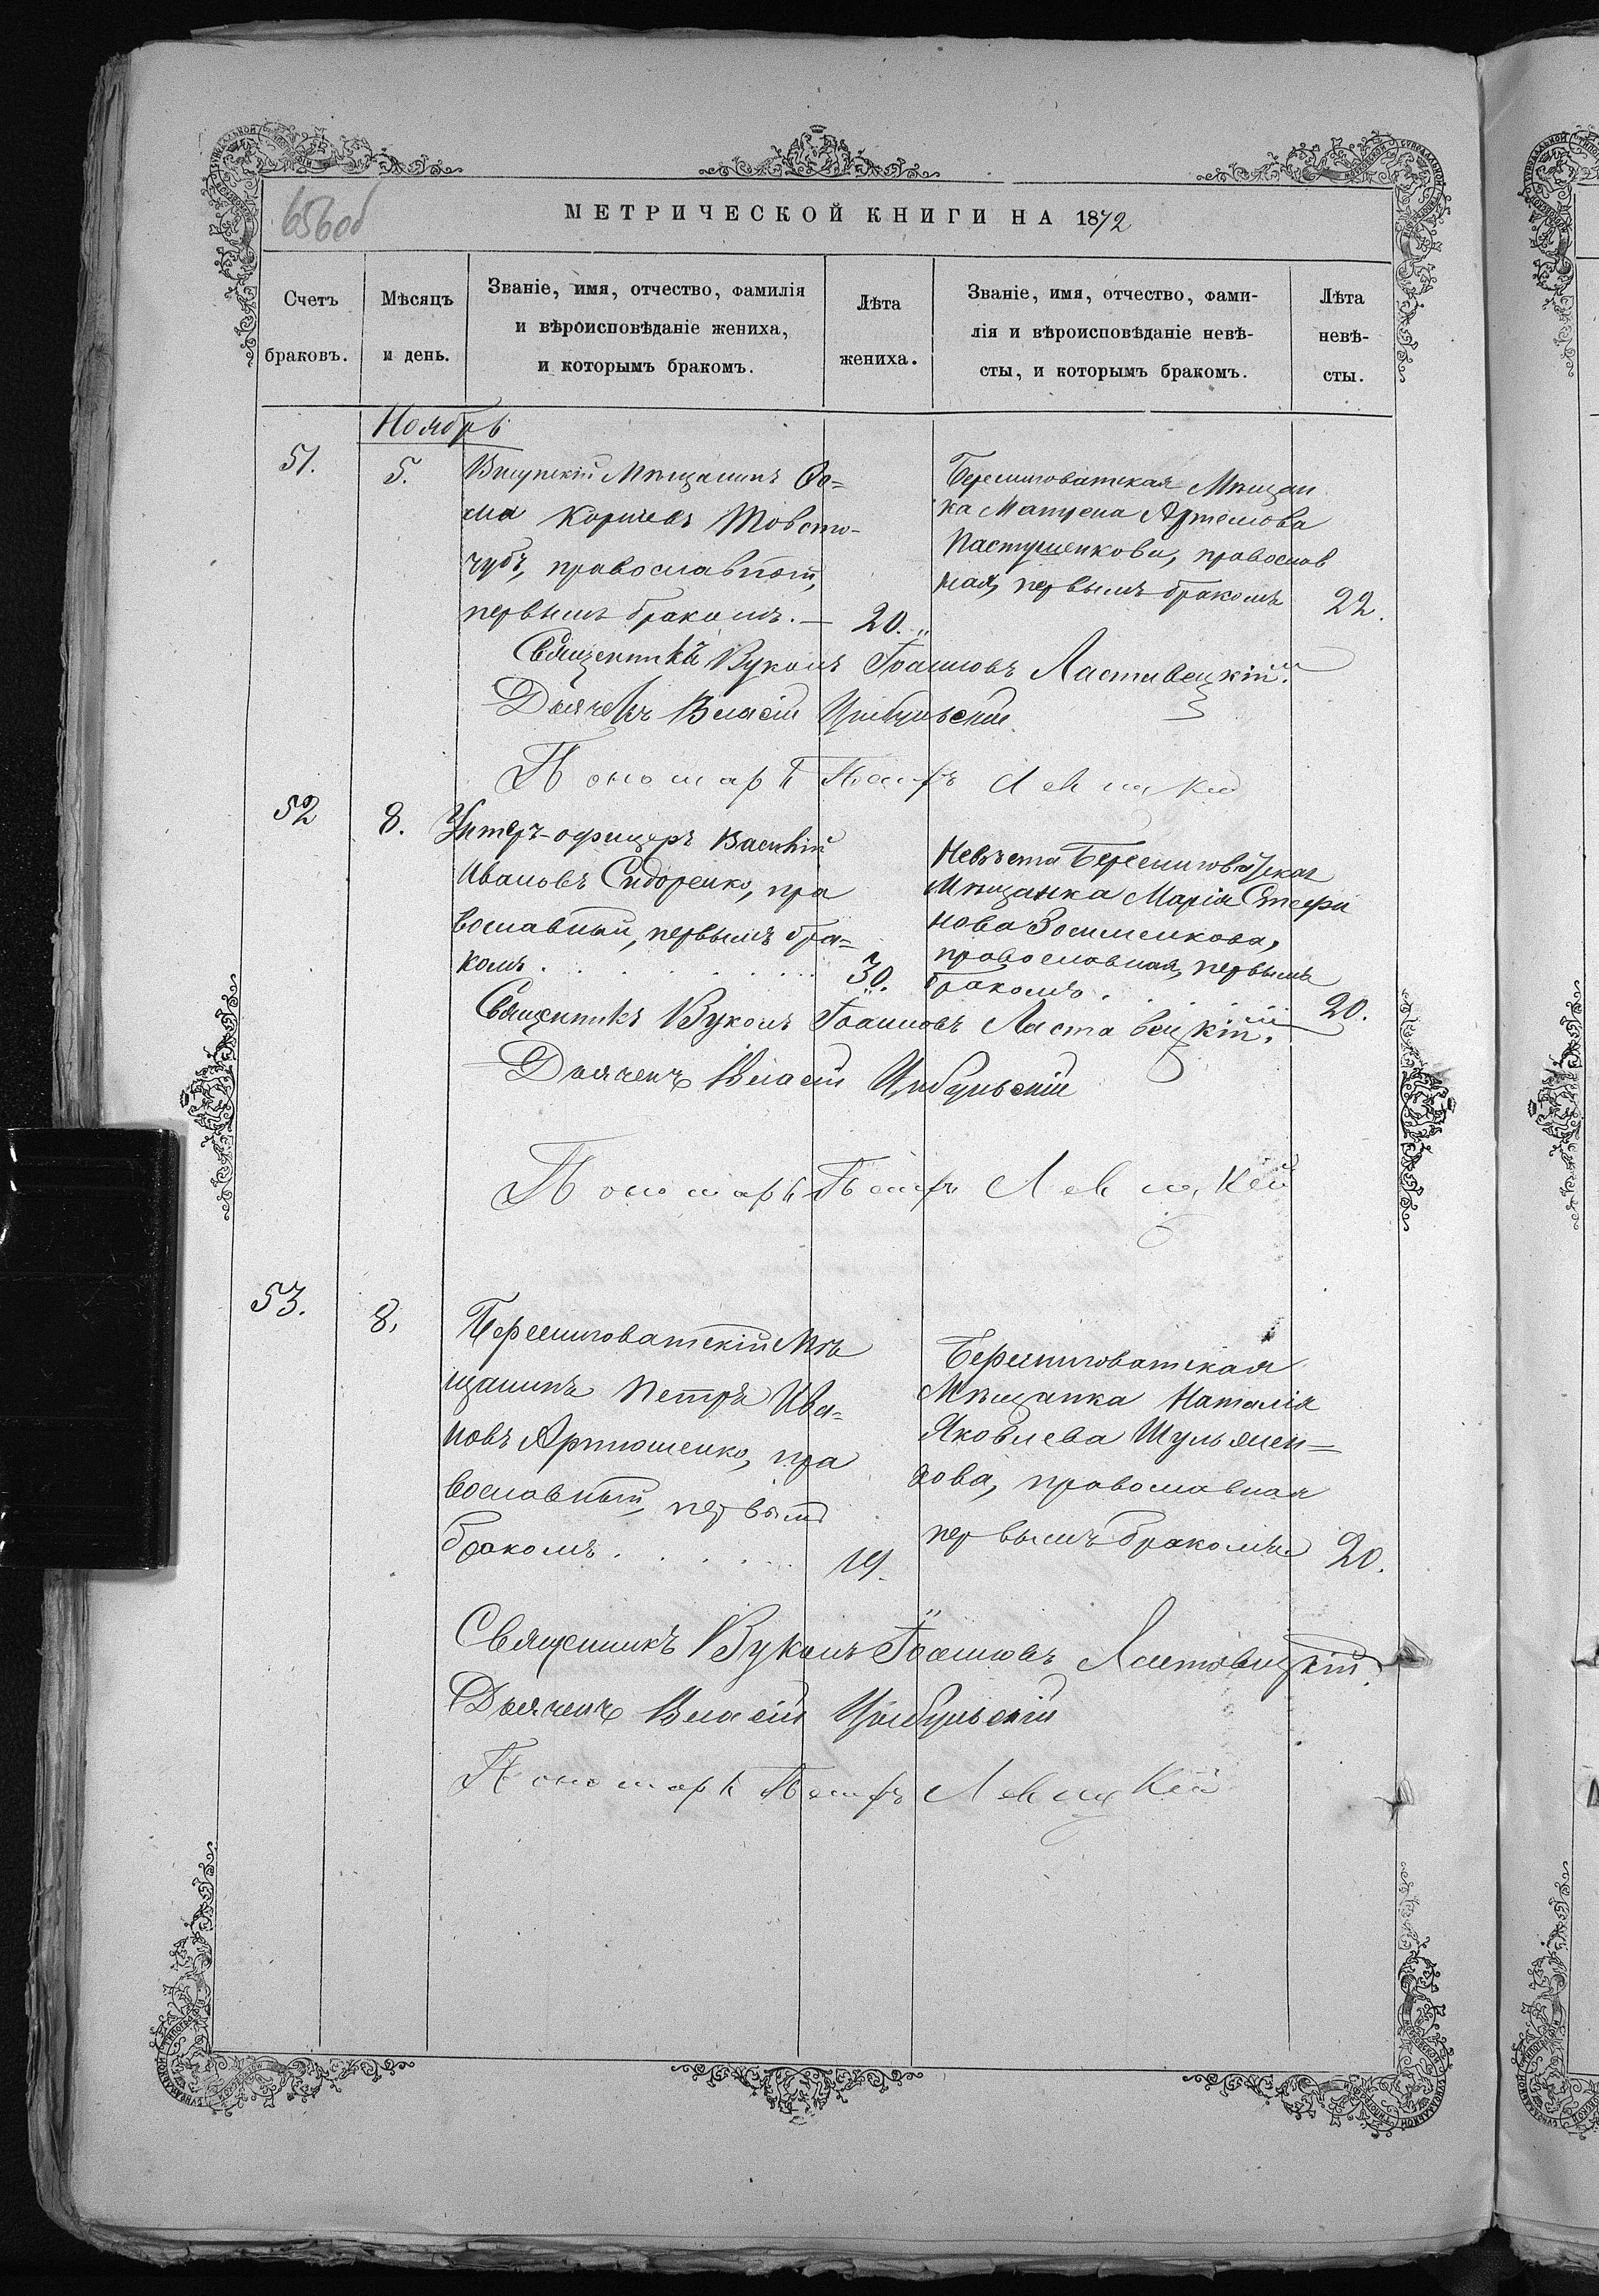 656об
МЕТРИЧЕСКОЙ КНИГИ НА 1872
Счетъ браковъ.
Мѣсяцъ и день.
Званіе, имя, отчество, фамилія
и вѣроисповѣданіе жениха,
и которымъ бракомъ.
Лѣта жениха.
Званіе, имя, отчество, фами-
лія и вѣроисповѣданіе невѣ-
сты, и которымъ бракомъ.
Лѣта невѣ-
сты.
Ноябрь
51.
5.
Мѣщанинъ Ѳо=
ма Корнѣевъ Товсто-
чубъ, православный,
первымъ бракомъ. — 20.
Берешговатская Мѣщан
ка Матрена Артемова
Пастушенкова, православ
ная, первымъ бракомъ 22.
Священникъ Вуколъ Іоанновъ Ластавецкій.
Дьячекъ Власій Цыбульскій
Пономарь Петръ Левицкій
52
8.
Унтеръ-офицеръ Василій
Ивановъ Сидоренко, пра
вославный, первымъ бра=
комъ . . . . . . . 30.
Невѣста Берешговатская
Мѣщанка Марія Стефа
нова Зосименкова,
православная, первымъ
бракомъ. . . . 20.
Священникъ Вуколъ Іоанновъ Ластавецкій.
Дьячекъ Власій Цыбульскій
Пономарь Петръ Левицкій
53.
8.
Берешговатскій Мѣ
щанинъ Петръ Ива=
новъ Артюшенко, пра
вославный, первымъ
бракомъ . . . . . . 19.
Берешговатская
Мѣщанка Наталія
Яковлева Шульмен=
кова, православная
первымъ бракомъ 20.
Священникъ Вуколъ Іоанновъ Ластовецкій.
Дьячекъ Власій Цыбульскій
Пономарь Петръ Левицкій